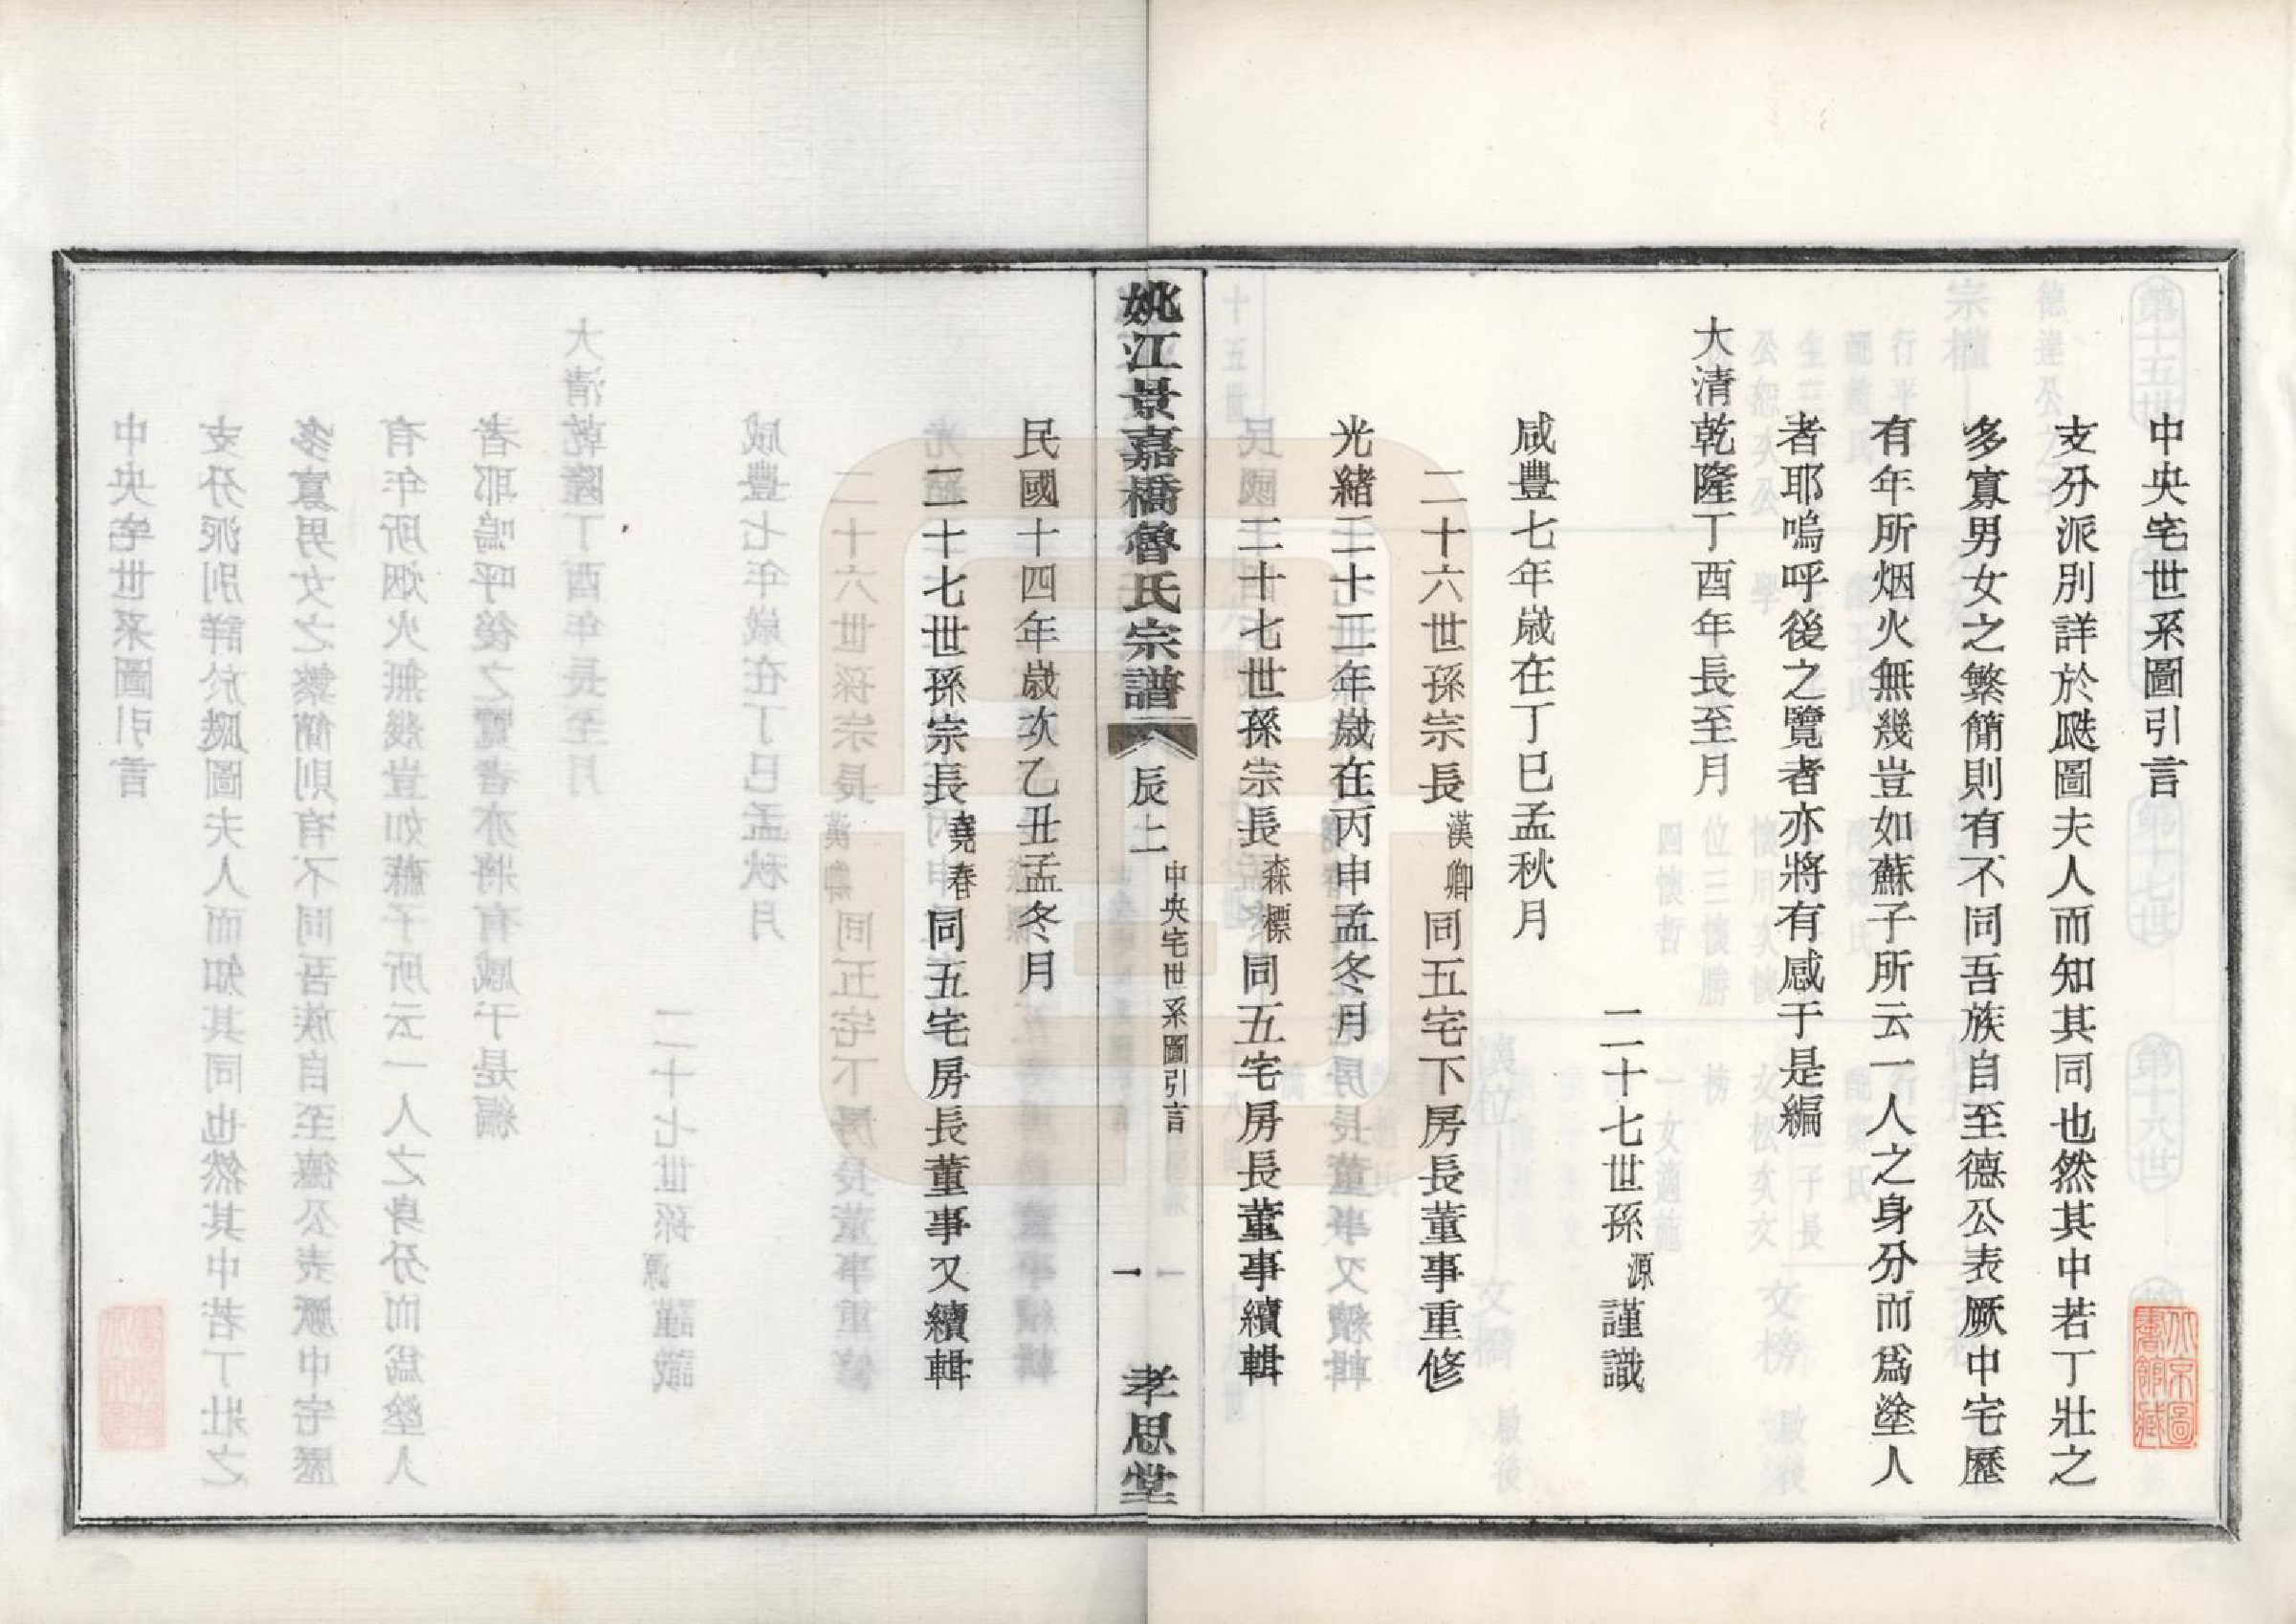 中央宅世系圖引言
支分派別詳於瓞圖夫人而知其同也然其中若丁壯之
多寡男女之繁簡則有不同吾族自至德公表厥中宅歷
有年所烟火無幾豈如蘇子所云一人之身分而爲塗人
者耶嗚呼後之覽者亦將有感于是編
大清乾隆丁酉年長至月
二十七世孫源謹識
咸豐七年歲在丁巳孟秋月
二十六世孫宗長漢卿同五宅下房長董事重修
光緒二十二年歲在丙申孟冬月
二十七世孫宗長森標同五宅房長董事續輯
姚江景嘉橋魯氏宗譜
辰上
中央宅世系圖引言
一
孝思堂
民國十四年歲次乙丑孟冬月
二十七世孫宗長堯春同五宅房長董事又續輯
北京圖
書館藏